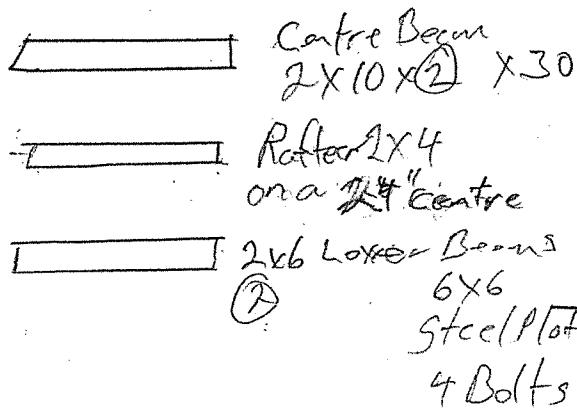 Centre Beam
2X10 x 2 X30
Rafter 2X4
on a 24" centre
2x6 Lower Beams
2
6X6
Steel Plat
4 Bolts